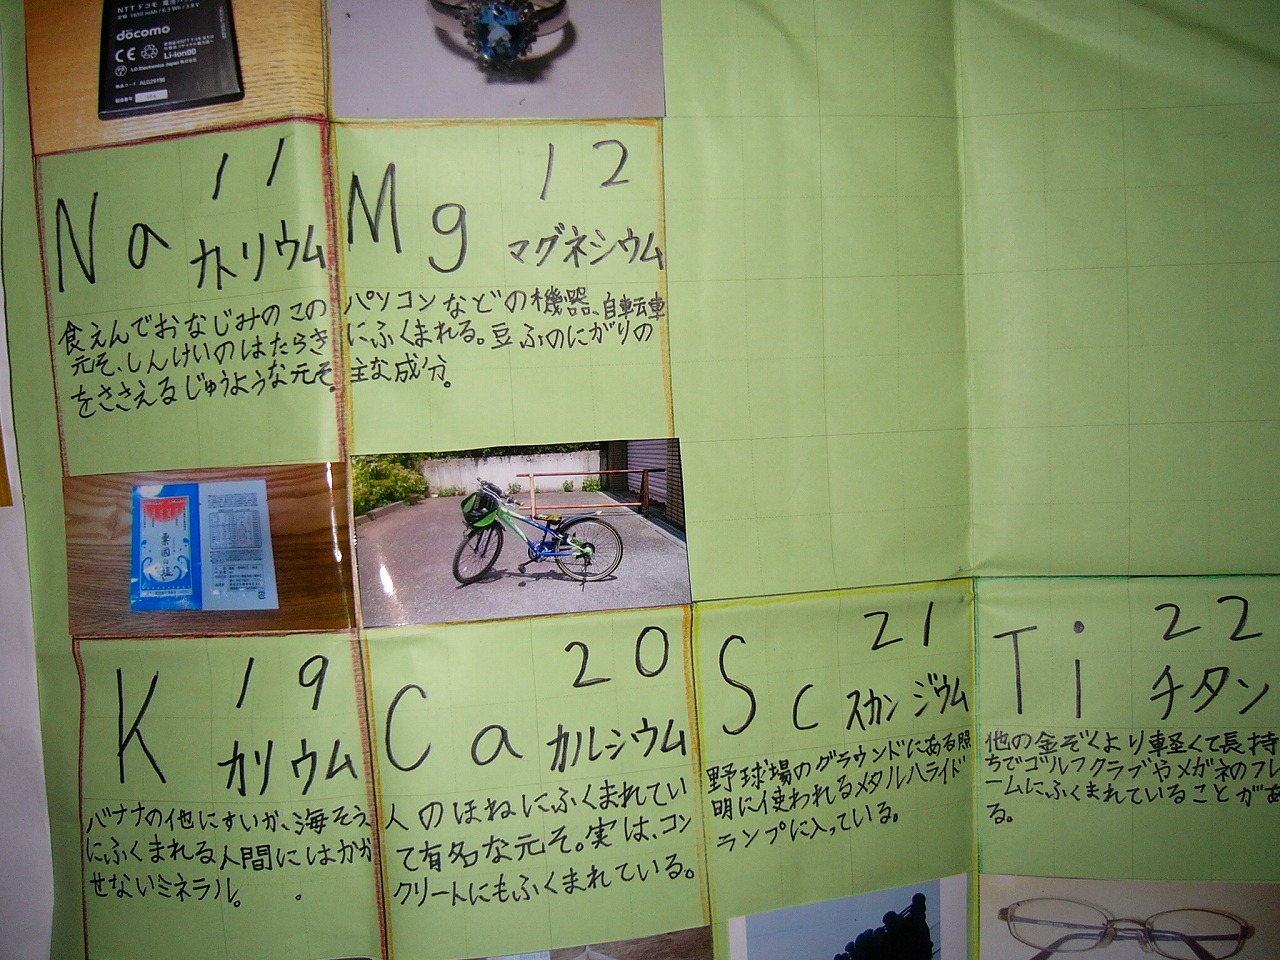 NTT ドコモ
döcomo
CE
Li-ion00
LG Electronics Japan 株式会社
11
Na ナトリウム
食えんでおなじみのこの
元そ、しんけいのはたらき
をささえるじゅうような元そ。
12
Mg マグネシウム
パソコンなどの機器、自転車
にふくまれる。豆ふのにがりの
主な成分。
19
K カリウム
バナナの他にすいか、海そう
にふくまれる人間にはかか
せないミネラル。
20
Ca カルシウム
人のほねにふくまれてい
て有名な元そ。実は、コン
クリートにもふくまれている。
21
Sc スカンジウム
野球場のグラウンドにある照
明に使われるメタルハライド
ランプに入っている。
22
Ti チタン
他の金ぞくより軽くて長持
ちでゴルフクラブやメガネのフレ
ームにふくまれていることがあ
る。